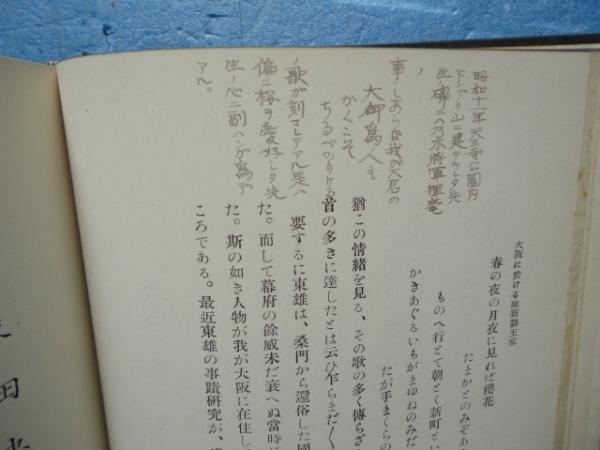 大阪に於ける維新勤王家
春の夜の月夜に見れば櫻花
たまかとのみぞあ
ものへ行とて朝とく新町とい
かきあぐるいもがまゆねのみだ
たが手まくらの
猶この情緒を見る、その歌の多く傳らざ
首の多きに達したとは云ひ乍らまだ〱
要するに東雄は、桑門から還俗した國
た。而して幕府の餘威未だ衰へぬ當時に
た。斯の如き人物が我が大阪に在住し
ころである。最近東雄の事蹟研究が、
昭和十一年天王寺公園内
ドングリ山ニ建テラレタ先
生ノ碑ニハ乃木將軍揮毫
ノ
事しあらば我が大君の
大御爲人も
かくこそ
ちるべかりけれ
ノ歌ガ刻マレテアル是ハ
偏ニ桜ヲ愛好シタ先
生ノ心ニ副ハンガ爲デ
アル。
田